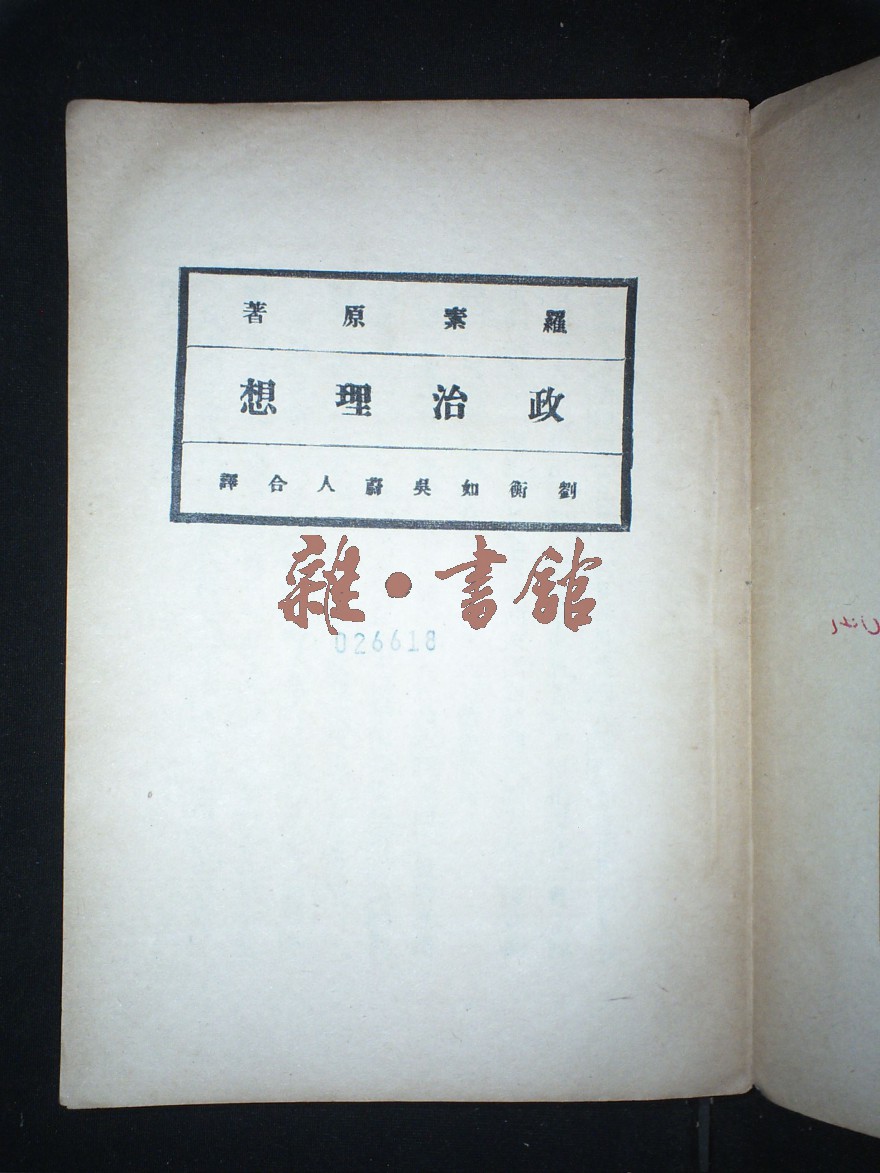 羅素原著
政治理想
劉衡如吳蔚人合譯
雜·書館
026618